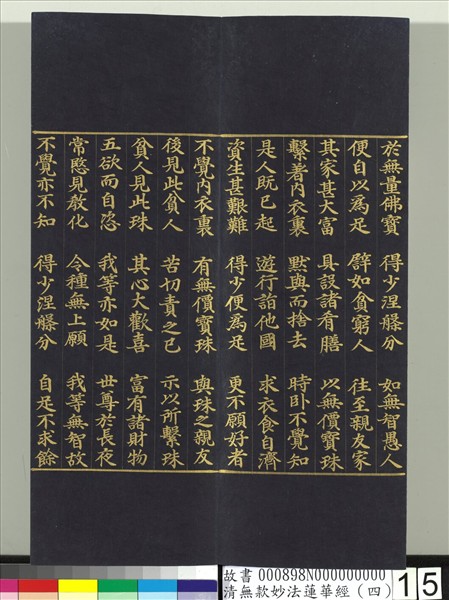 於無量佛寶　得少涅槃分　如無智愚人
便自以為足　譬如貧窮人　往至親友家
其家甚大富　具設諸肴膳　以無價寶珠
繫著內衣裏　默與而捨去　時臥不覺知
是人既已起　遊行詣他國　求衣食自濟
資生甚艱難　得少便為足　更不願好者
不覺內衣裏　有無價寶珠　與珠之親友
後見此貧人　苦切責之已　示以所繫珠
貧人見此珠　其心大歡喜　富有諸財物
五欲而自恣　我等亦如是　世尊於長夜
常愍見教化　令種無上願　我等無智故
不覺亦不知　得少涅槃分　自足不求餘
故書 000898N000000000
清無款妙法蓮華經（四）
15